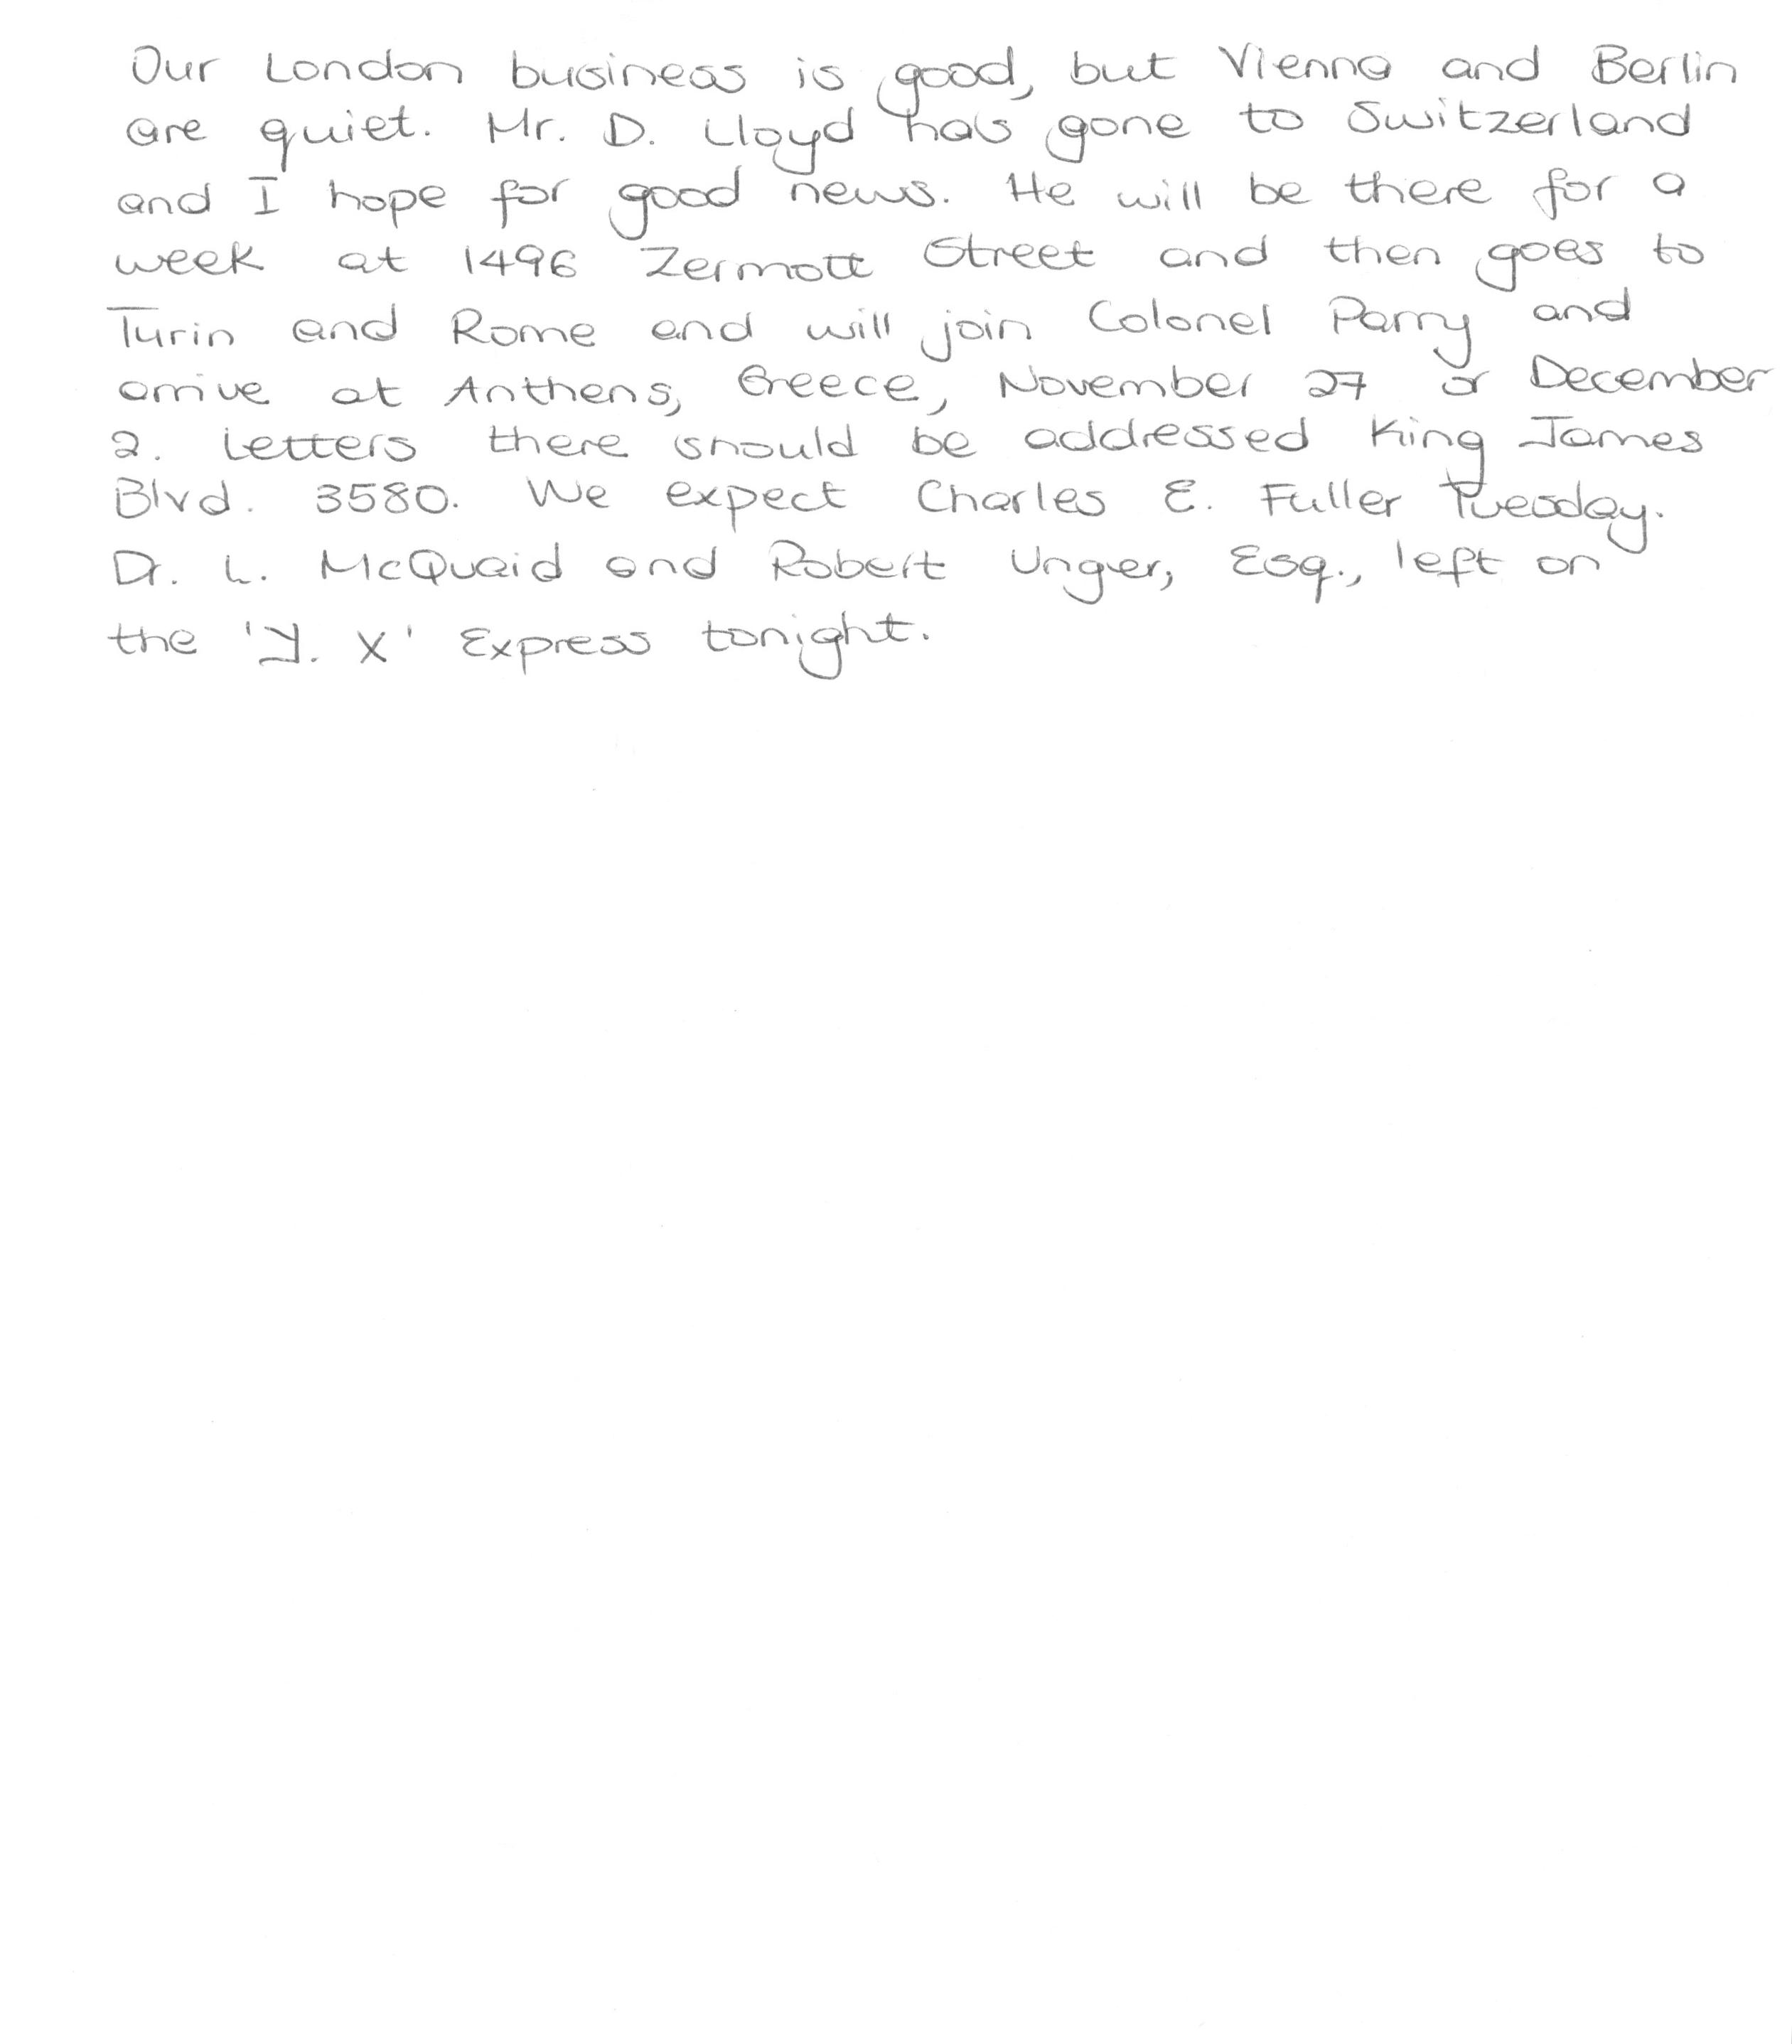 Our London business is good, but Vienna and Berlin
are quiet. Mr. D. Lloyd has gone to Switzerland
and I hope for good news. He will be there for a
week at 1496 Zermott Street and then goes to
Turin and Rome and will join Colonel Parry and
arrive at Anthens, Greece, November 27 or December
2. Letters there should be addressed King James
Blvd. 3580. We expect Charles E. Fuller Tuesday.
Dr. L. McQuaid and Robert Unger, Esq., left on
the 'Y. X' Express tonight.